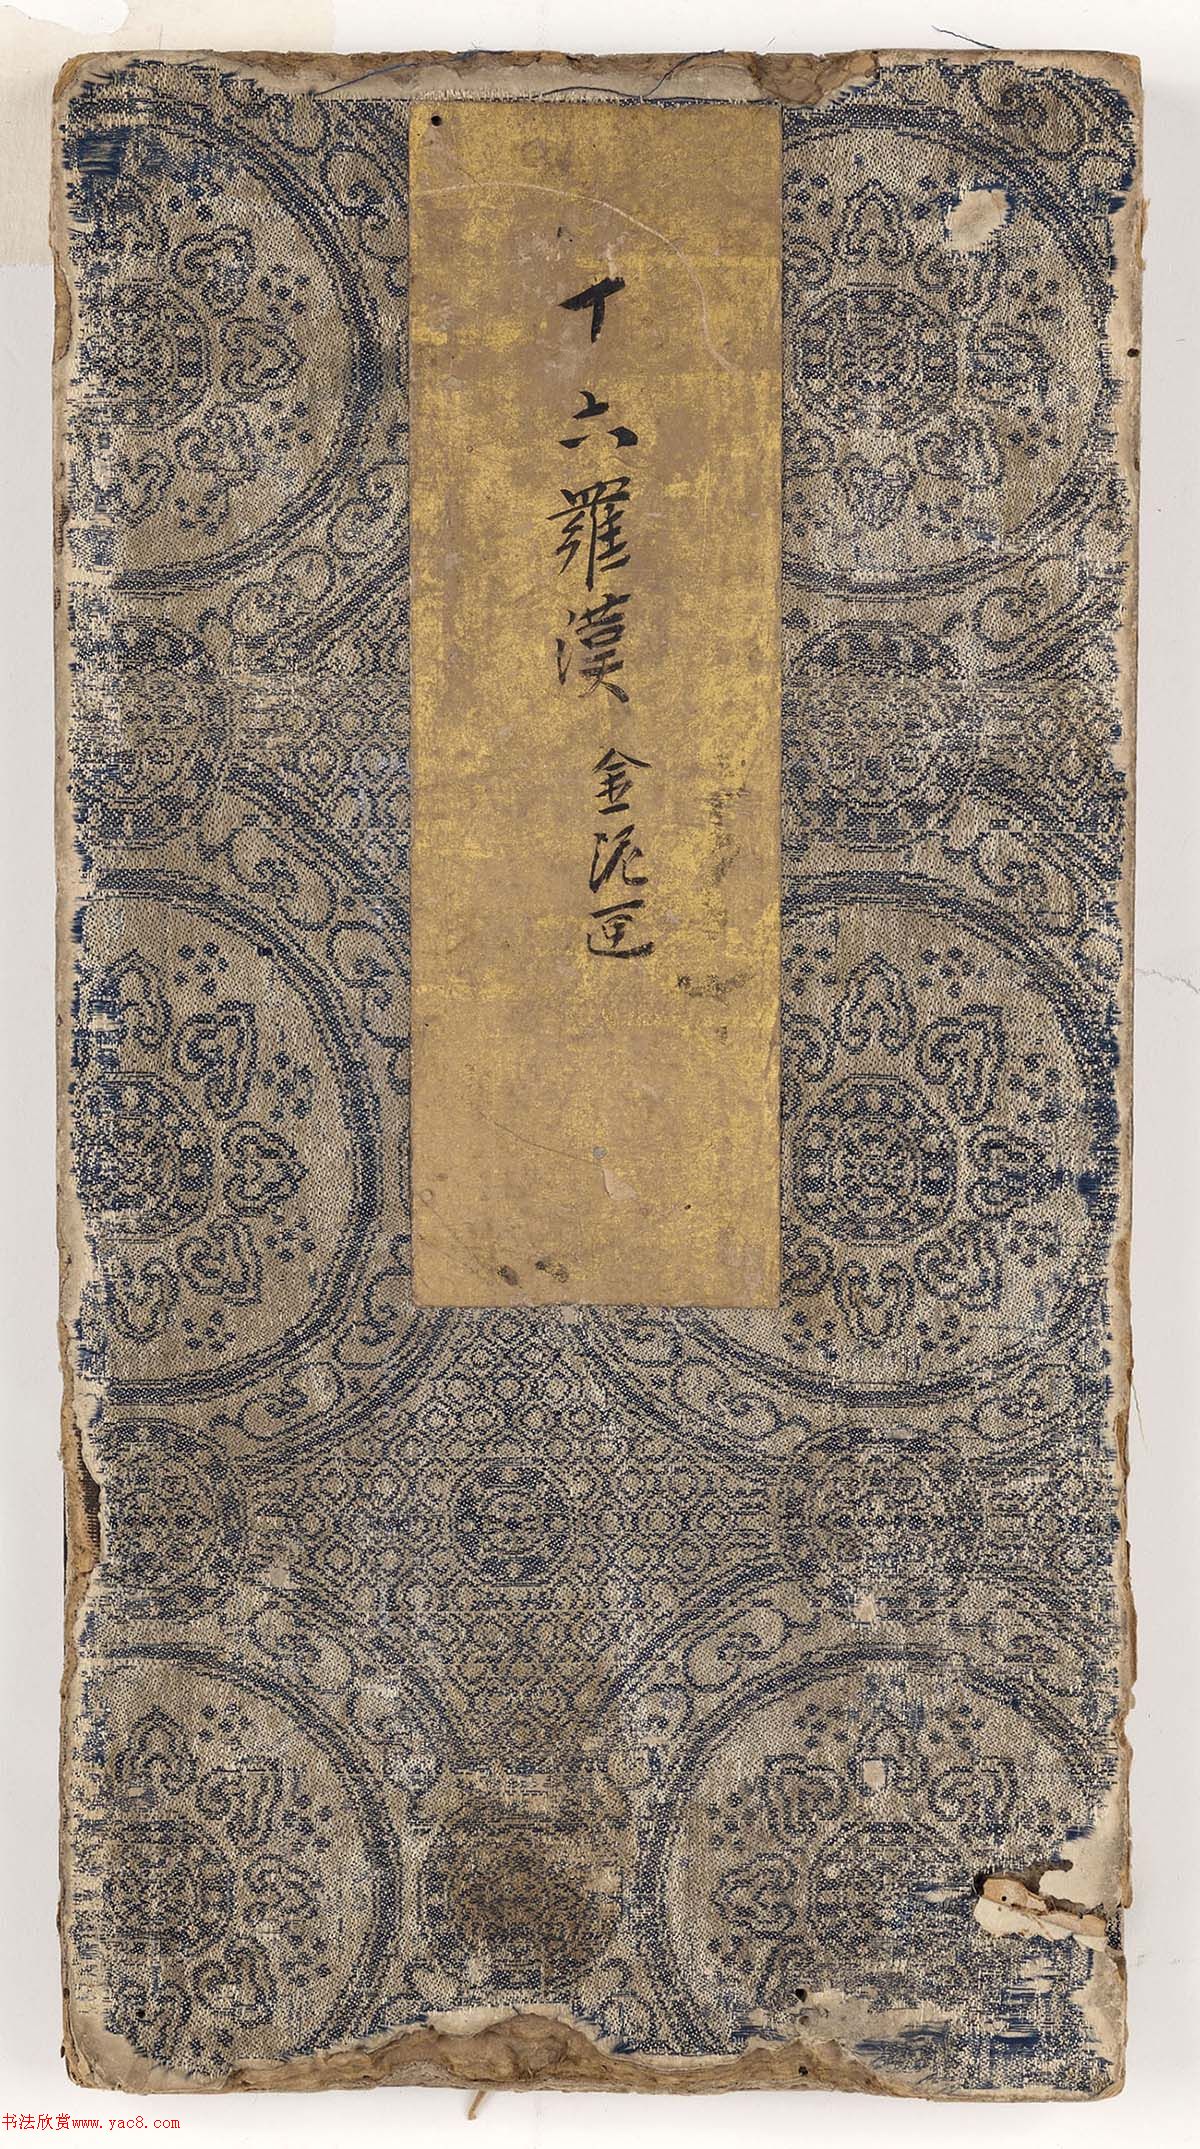 十六羅漢 金泥画
书法欣赏www.yac8.com